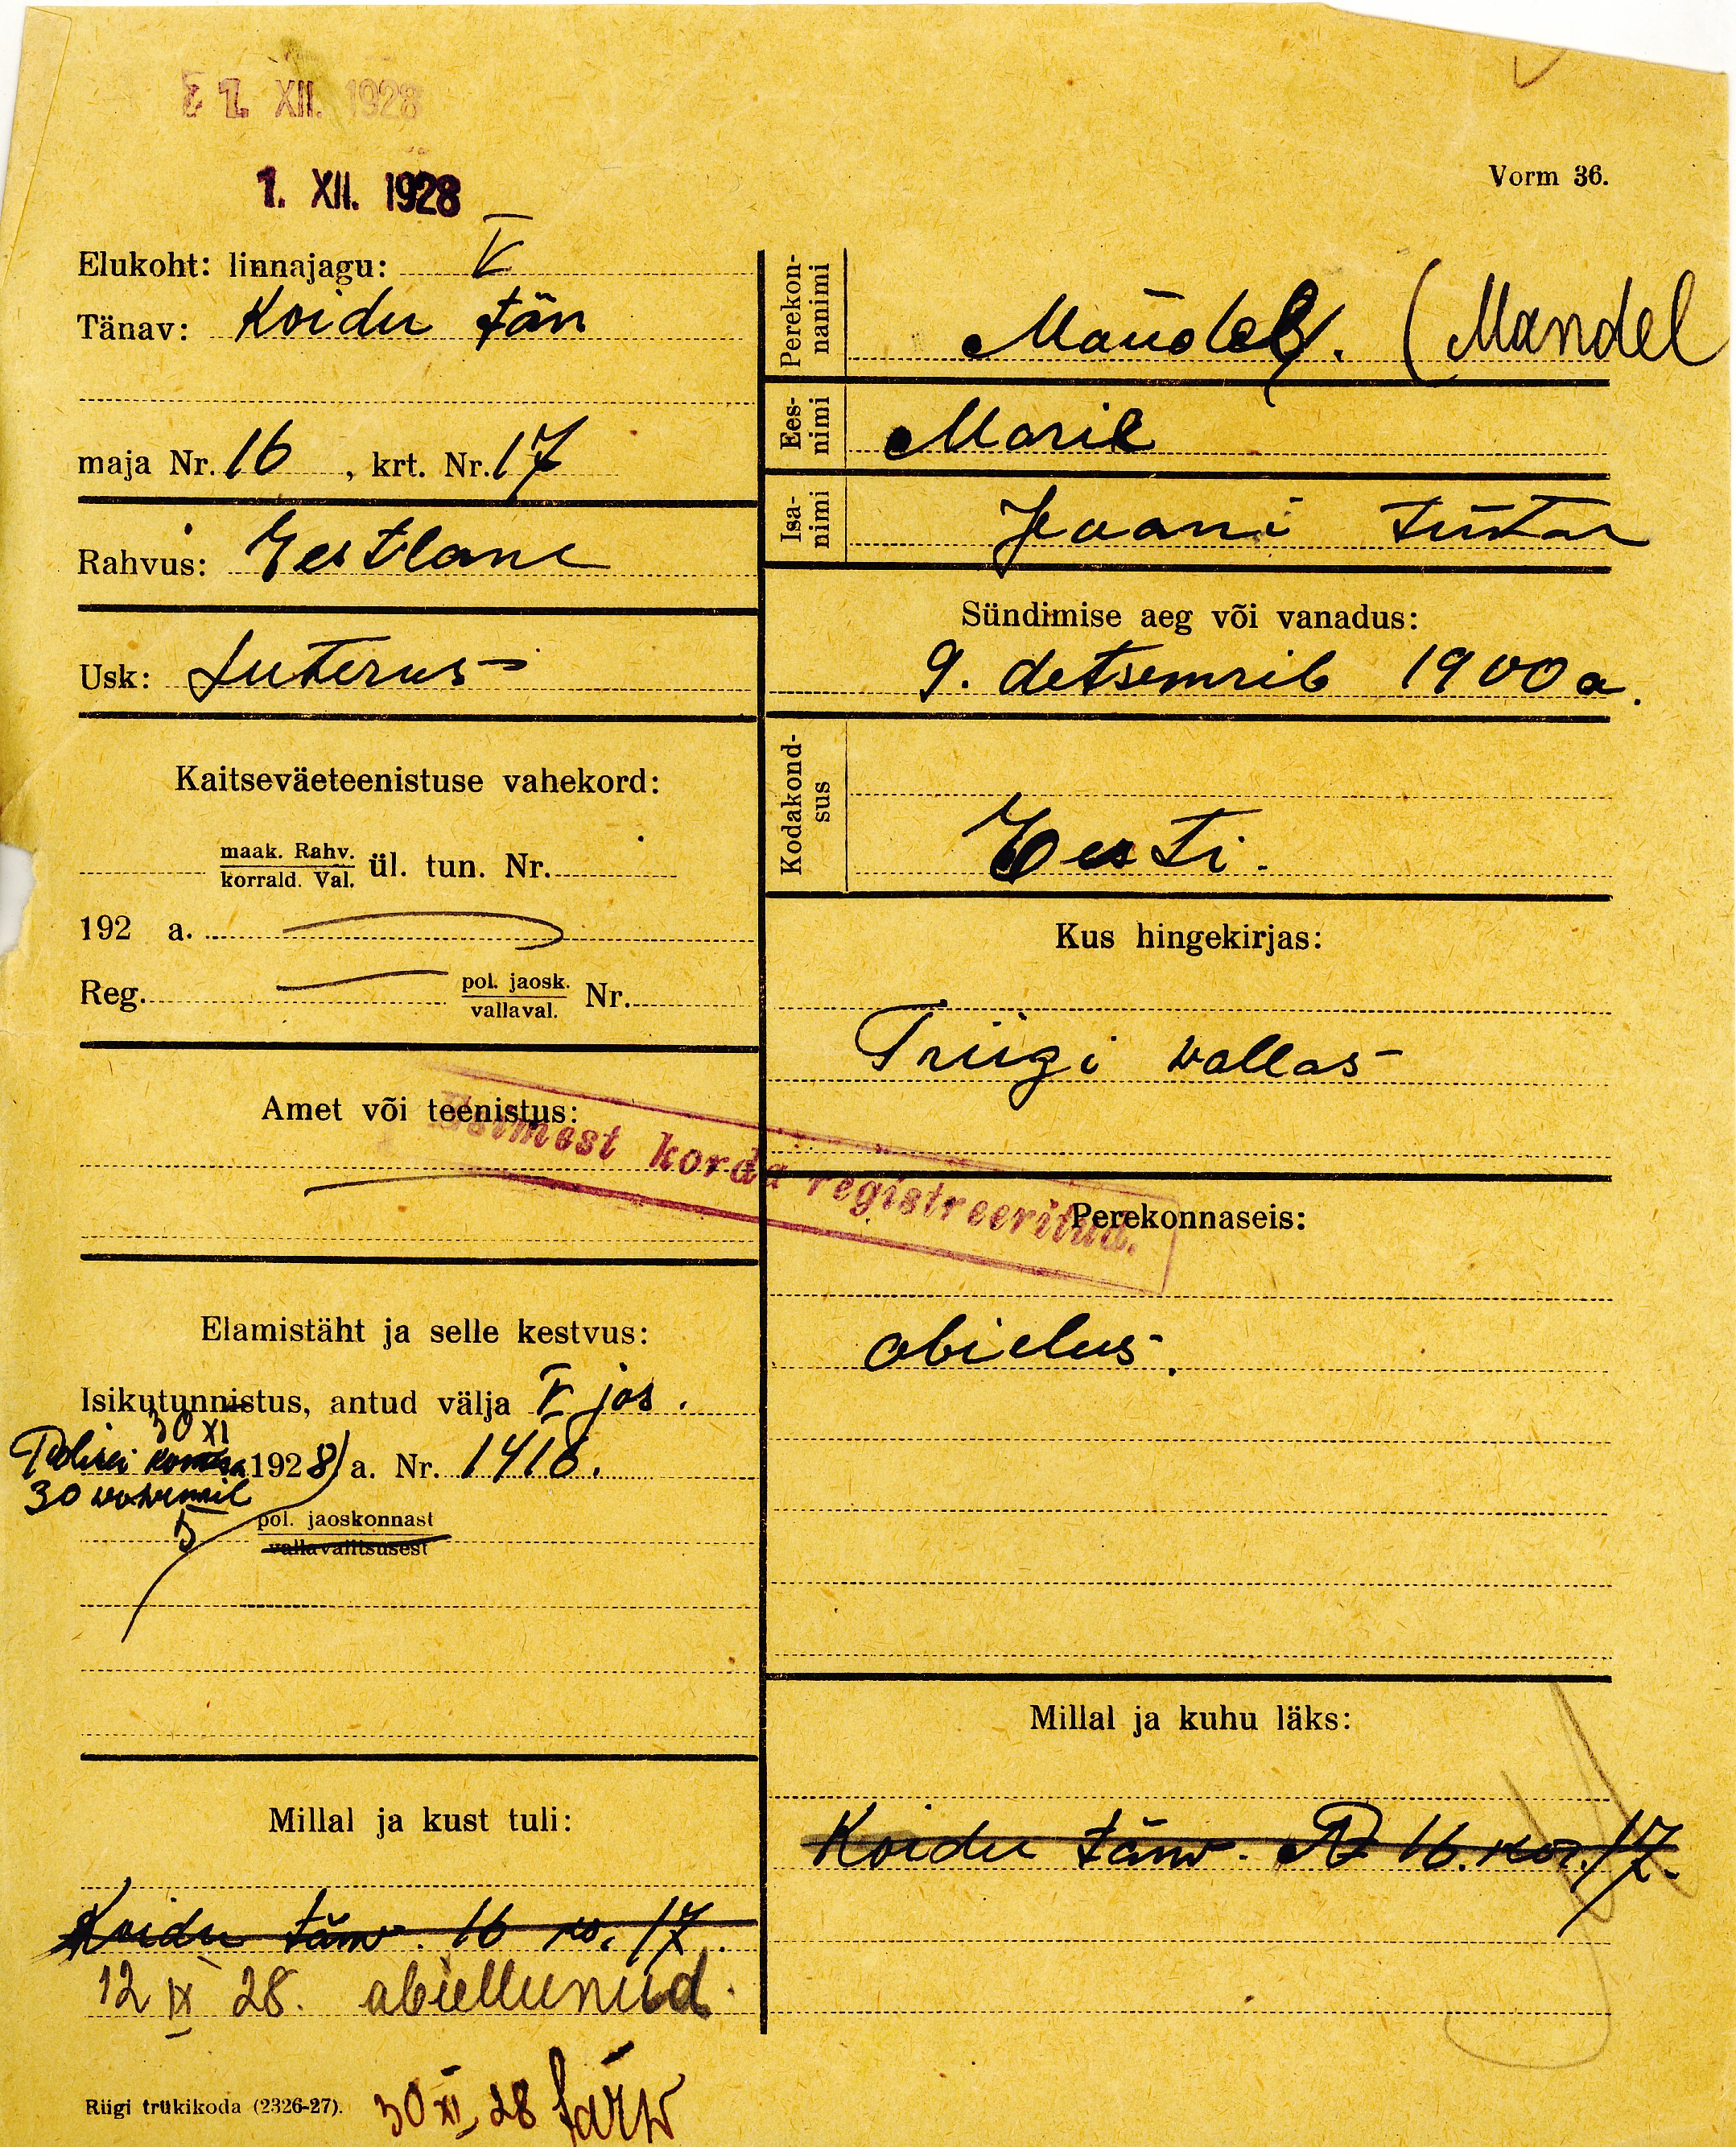 1. XII. 1928
1. XII. 1928
Vorm 36.
Elukoht: linnajagu: V
Tänav: Koidu tän
maja Nr. 16, krt. Nr. 17
Rahvus: Eestlane
Usk: Luterus
Kaitseväeteenistuse vahekord:
maak. Rahv.
korrald. Val. ül. tun. Nr.
192 a.
Reg. pol. jaosk.
vallaval. Nr.
Amet või teenistus:
Esimest korda registreeritud.
Elamistäht ja selle kestvus:
Isikutunnistus, antud välja V jos.
30 XI
1928 a. Nr. 1416.
30
5 pol. jaoskonnast
vallavalitsusest
Millal ja kust tuli:
Koidu tänv. 16 ko. 17.
12 IX 28. abiellunud.
Riigi trükikoda (2326-27).
30 XI 28 Järw
Perekon-
nanimi
Mändel. (Mandel
Ees-
nimi
Marie
Isa-
nimi
Jaani tütar
Sündimise aeg või vanadus:
9. detsemrib 1900 a.
Kodakond-
sus
Eesti.
Kus hingekirjas:
Triigi vallas
Perekonnaseis:
abielus.
Millal ja kuhu läks:
Koidu tänv. 16. kor. 17.